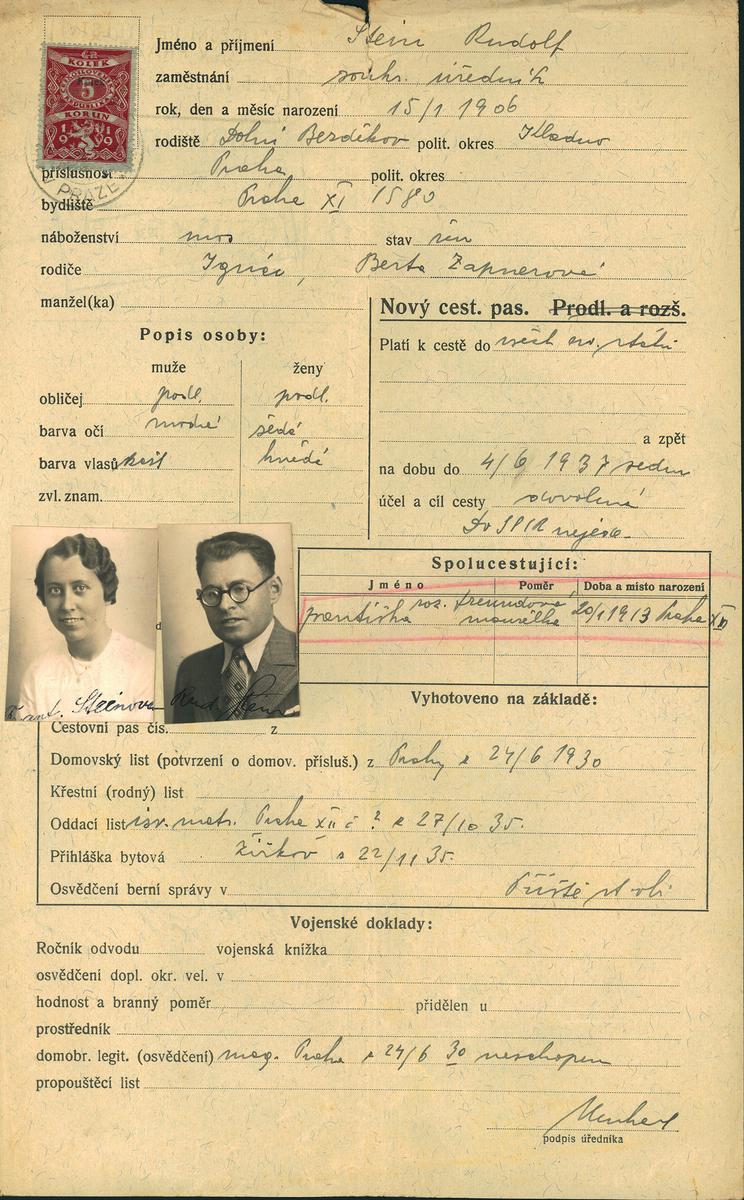 KOLEK
5
KORUN
1919
PRAZE
Jméno a příjmení Stein Rudolf
zaměstnání soukr. úředník
rok, den a měsíc narození 15/1 1906
rodiště Dolní Bezděkov polit. okres Kladno
příslušnost Praha polit. okres
bydliště Praha XI 1580
náboženství mos stav žen
rodiče Ignác, Berta Zapnerová
manžel(ka)
Nový cest. pas. Prodl. a rozš.
Popis osoby:
Platí k cestě do všech ev. států
muže ženy
obličej podl. podl.
barva očí modré šedé
a zpět
barva vlasů kašt hnědé
na dobu do 4/6 1937 sedm
zvl. znam.
účel a cíl cesty dovolená
Do SPIR nejede.
Spolucestující:
Jméno Poměr Doba a místo narození
Františka roz. Freundová manželka 20/1 1913 Praha XII
Frant. Steinova Rud. Stein
Vyhotoveno na základě:
Cestovní pas čís. z
Domovský list (potvrzení o domov. přísluš.) z Prahy z 24/6 1930
Křestní (rodný) list
Oddací list isr. matr. Praha XII č ? z 27/10 35.
Přihláška bytová Žižkov z 22/11 35.
Osvědčení berní správy v
Vojenské doklady:
Ročník odvodu vojenská knížka
osvědčení dopl. okr. vel. v
hodnost a branný poměr přidělen u
prostředník
domobr. legit. (osvědčení) mag. Praha z 24/6 30 neschopen
propouštěcí list
podpis úředníka